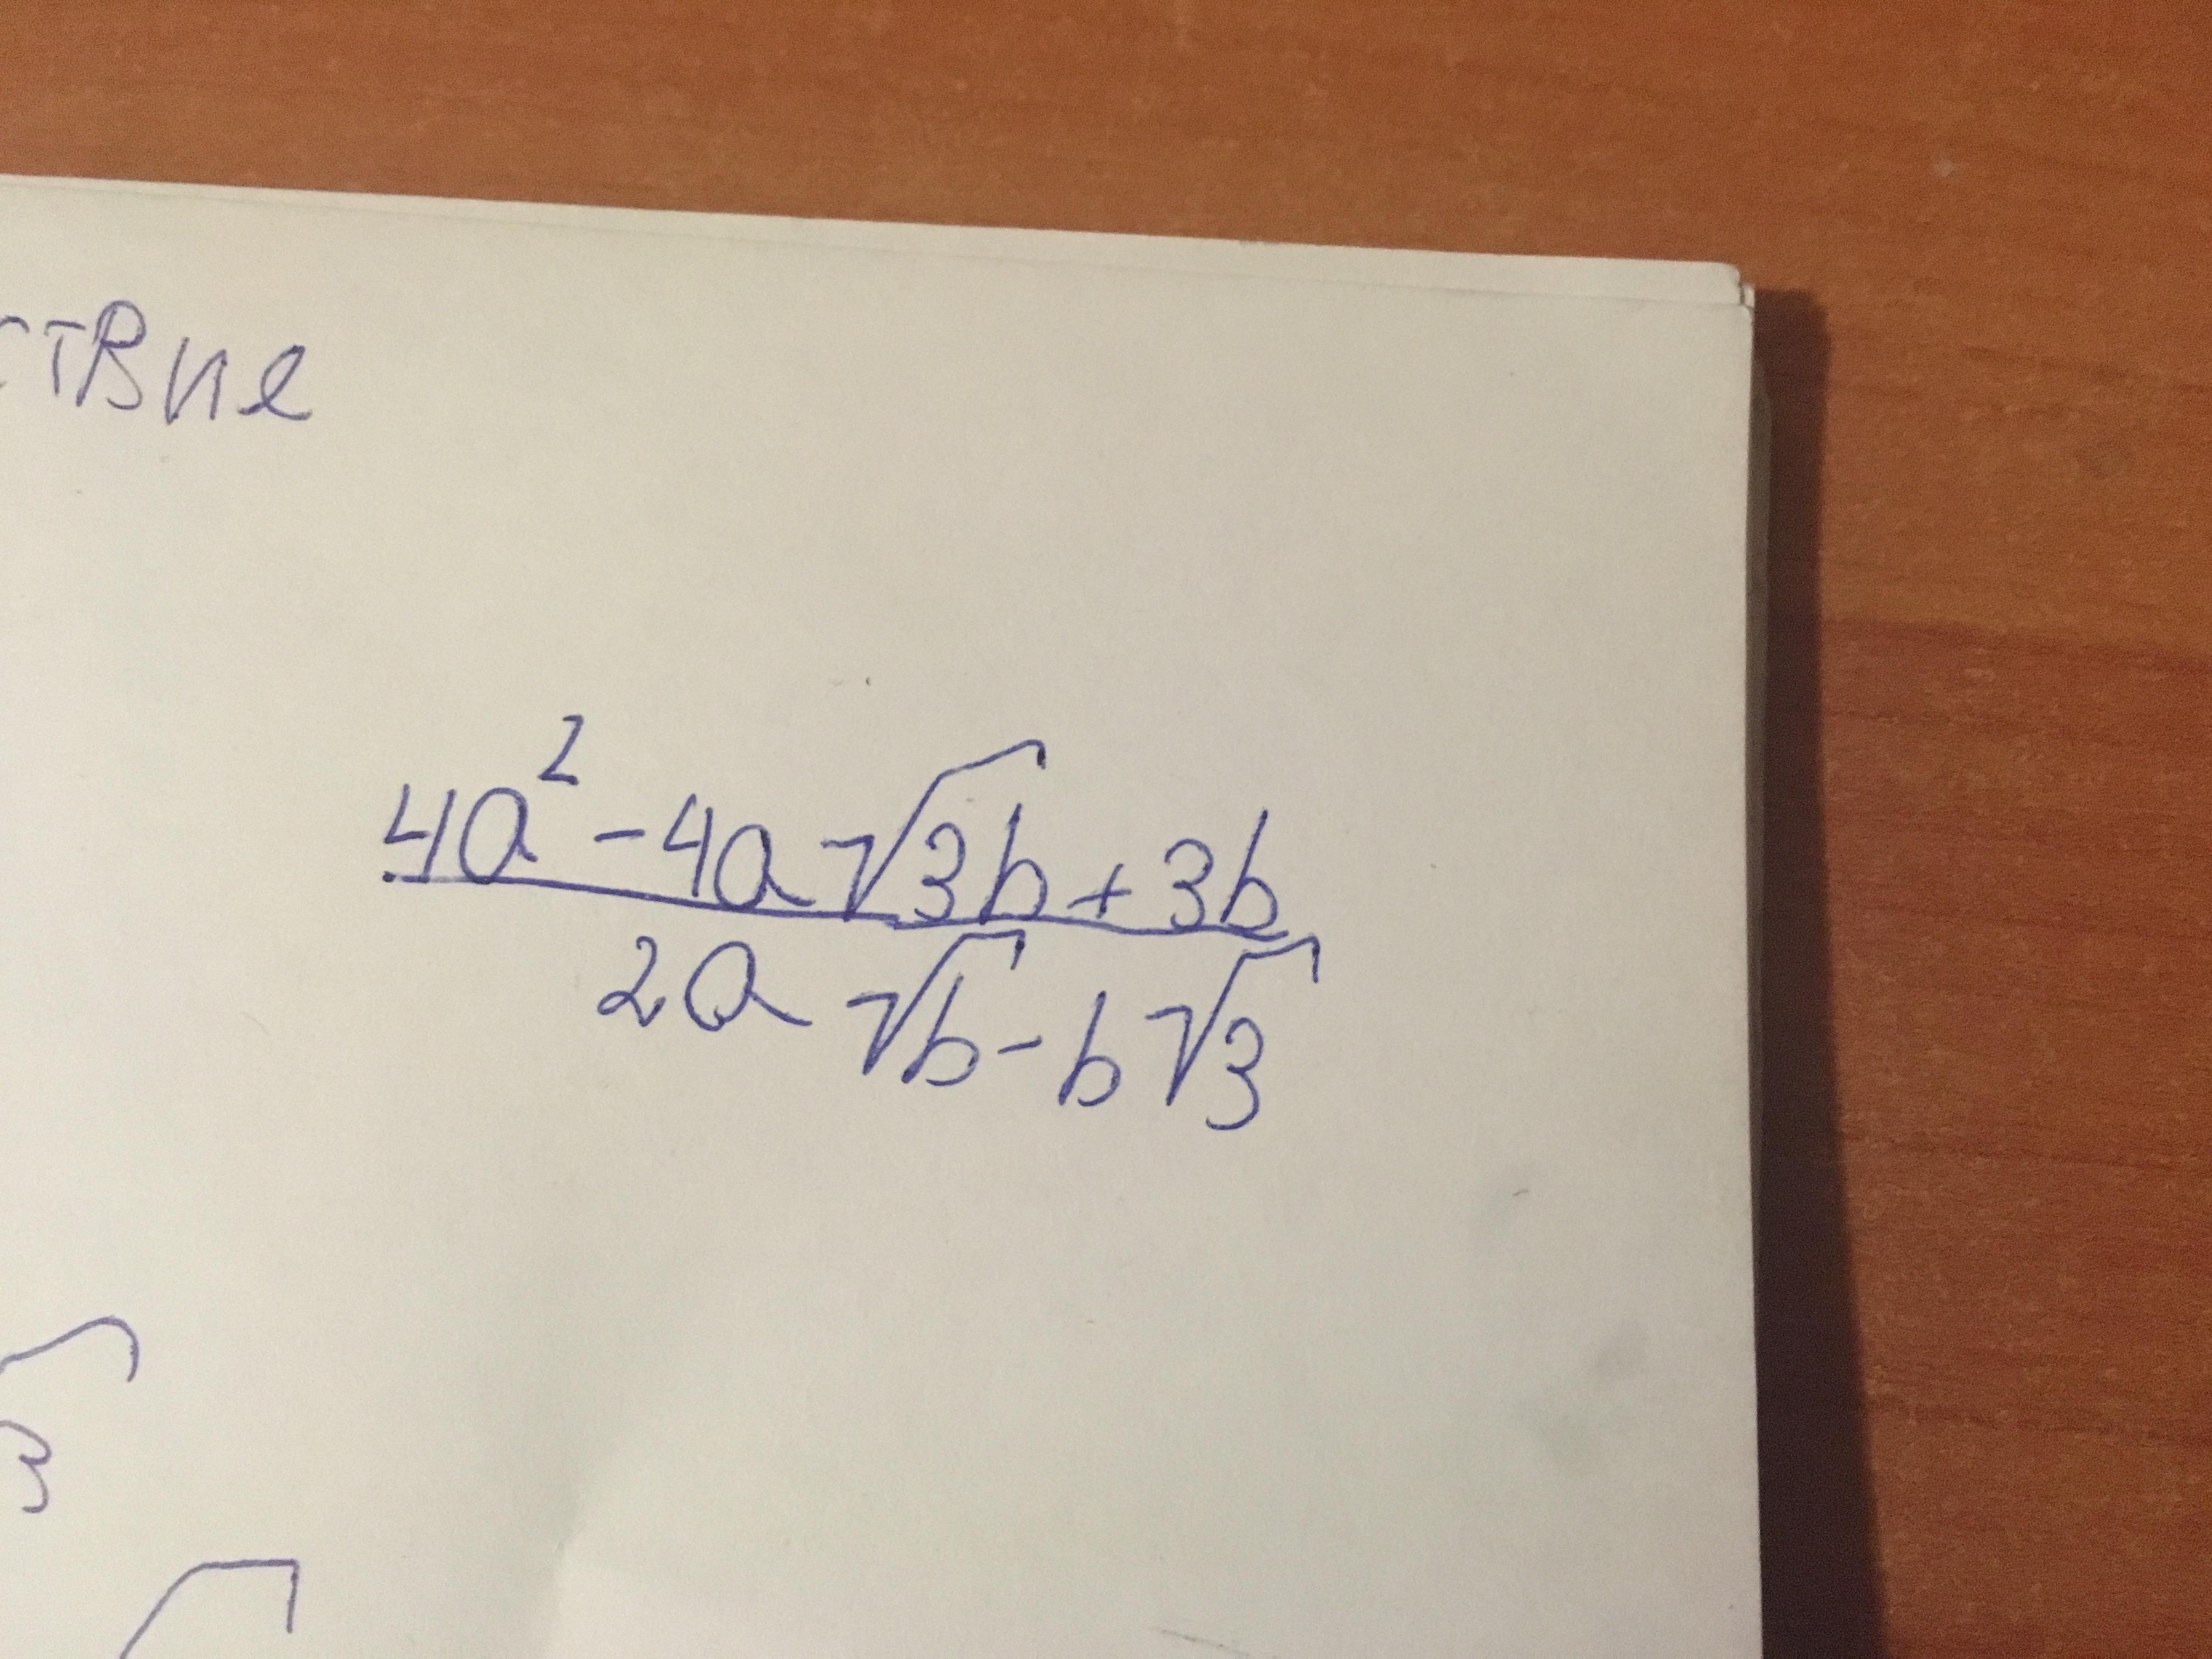 ствие
4a² - 4a√3b + 3b
2a√b - b√3
3